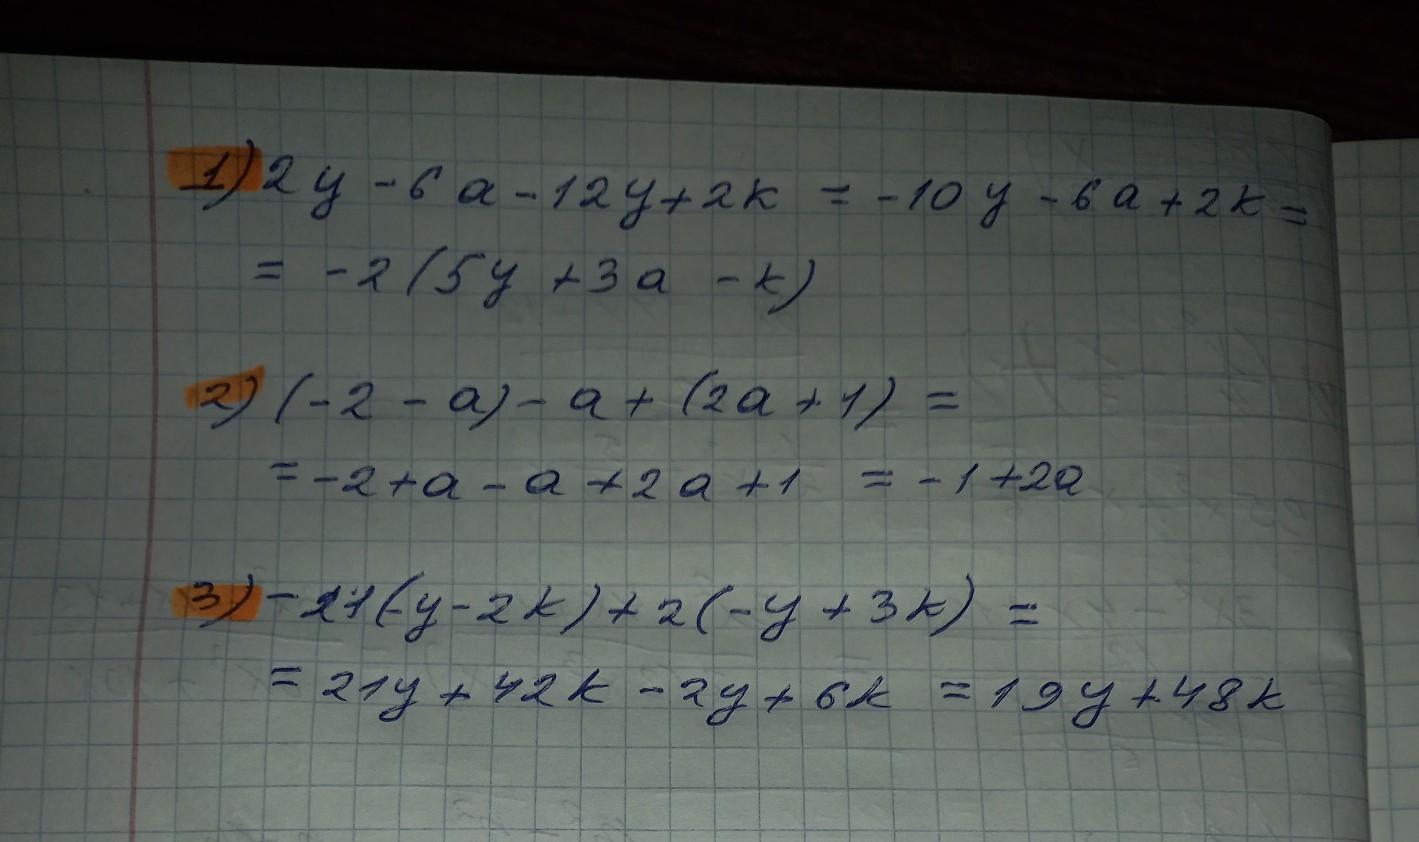 1) 2y - 6a - 12y + 2k = -10y - 6a + 2k =
= -2(5y + 3a - k)
2) (-2 - a) - a + (2a + 1) =
= -2 + a - a + 2a + 1 = -1 + 2a
3) -21(-y - 2k) + 2(-y + 3k) =
= 21y + 42k - 2y + 6k = 19y + 48k